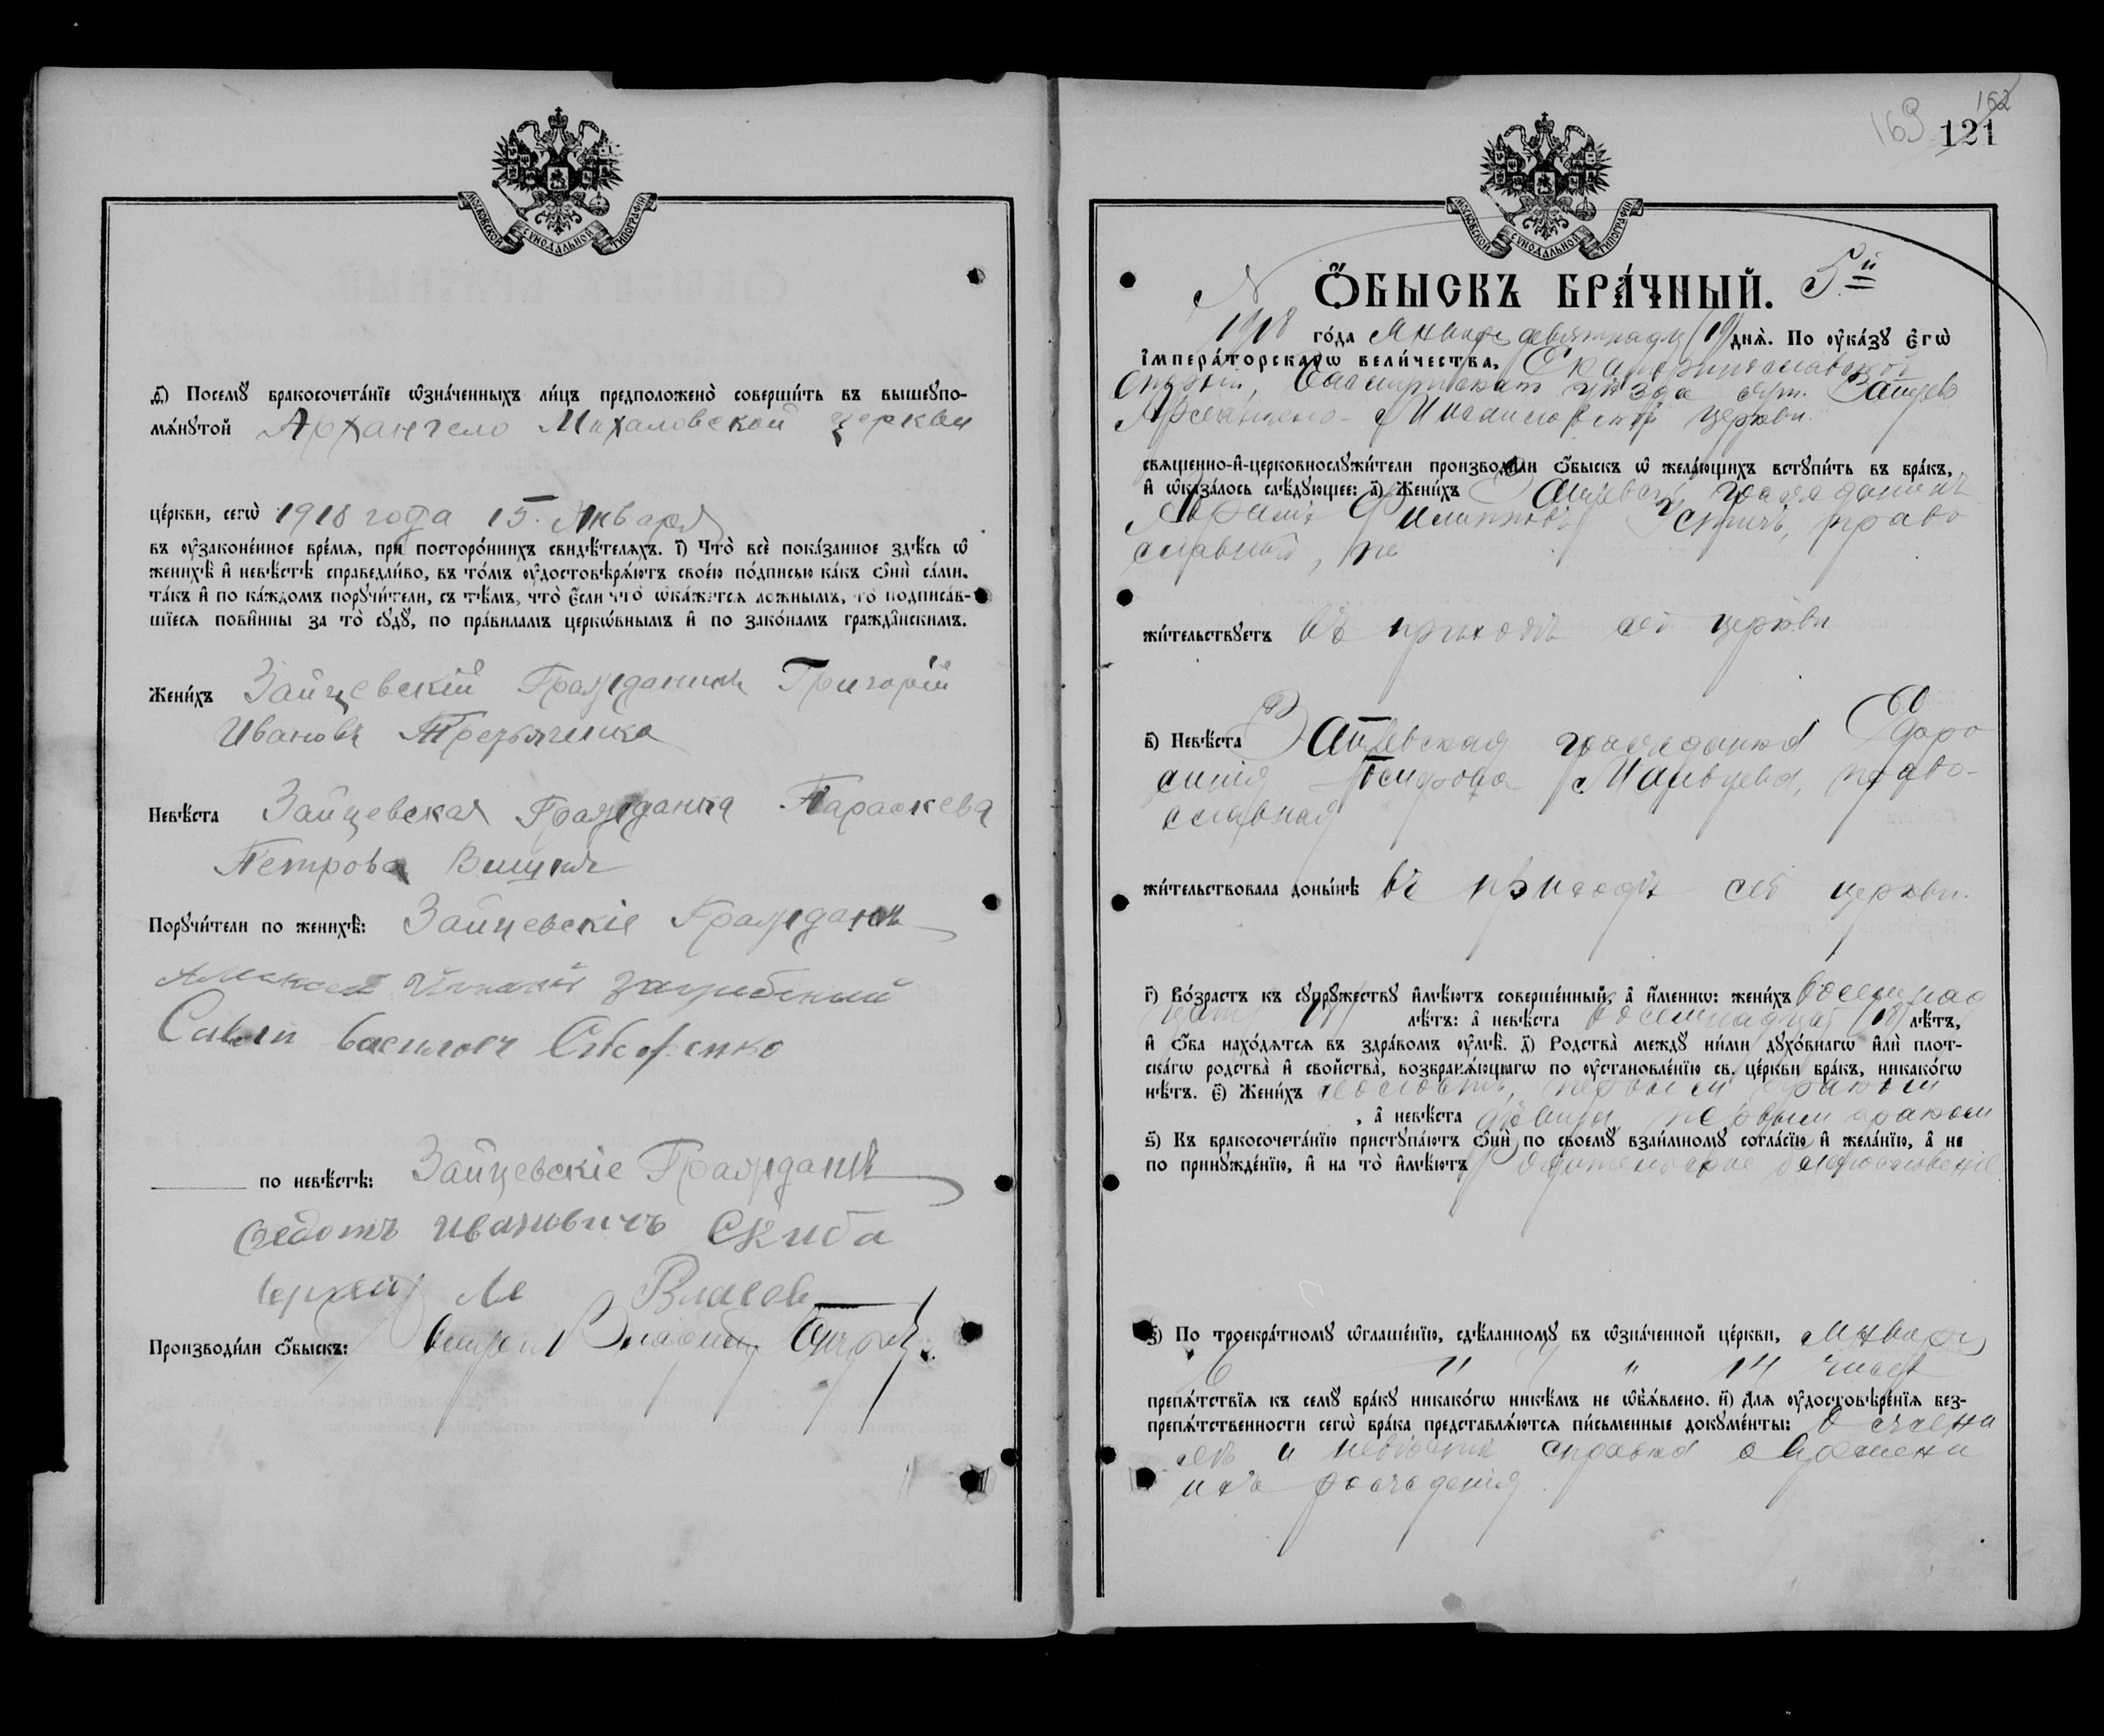 МОСКОВСКОЙ СУНОДАЛЬНОЙ ТИПОГРАФІИ
ѳ҃) Посемꙋ̀ бракосочета́нїе ѡ҆зна́ченныхъ ли́цъ предположено̀ соверши́ть въ вышеꙋпо-
мѧ́нꙋтой Архангело Михаловской церкви
це́ркви, сегѡ̀ 1918 года 15 Января
въ ᲂу҆законе́нное вре́мѧ, прѝ посторо́ннихъ свидѣ́телѧхъ. і҃) Что̀ всѐ пока́занное здѣ́сь ѡ҆
женихѣ̀ и҆ невѣ́стѣ справедли́во, въ то́мъ ᲂу҆достовѣрѧ́ютъ свое́ю по́дписью ка́къ ѻ҆нѝ са́ми,
та́къ и҆ по ка́ждомъ порꙋчи́тели, съ тѣ́мъ, что̀ є҆́сли что̀ ѡ҆ка́жетсѧ ло́жнымъ, то̀ подписа́в-
шїесѧ пови́нны за то̀ сꙋдꙋ̀, по пра́виламъ церкѡ́внымъ и҆ по зако́намъ гражда̑нскимъ.
Жени́хъ Зайцевскій Гражданинъ Григорій
Ивановъ Третьяченко
Невѣ́ста Зайцевская Гражданка Параскева
Петрова
Порꙋчи́тели по женихѣ̀: Зайцевскіе Граждане
загребеный
Савелій Васильевъ
по невѣ́стѣ: Зайцевскіе Граждане
Федотъ Ивановичъ Скиба
Сергей Власовъ
Производи́ли ѻ҆́быскъ:
162
169 121
МОСКОВСКОЙ СУНОДАЛЬНОЙ ТИПОГРАФІИ
№ Ѻ҆́БЫСКЪ БРА́ЧНЫЙ. 5й
1918 го́да Января девятнадц (19) днѧ̀. По ᲂу҆ка́зꙋ є҆гѡ̀
і҆мпера́торскагѡ вели́чества, Екатеринославской
Епархіи, Бахмутскаго уѣзда сел. Зайцево
Архангело-Михаиловской церкви
свѧще́нно-и҆-церковнослꙋжи́тели производи́ли ѻ҆́быскъ ѡ҆ жела́ющихъ встꙋпи́ть въ бра́къ,
и҆ ѡ҆каза́лось слѣ́дꙋющее: а҃) Жени́хъ Зайцевскій гражданинъ
Филипповъ Устичъ, право
славный, пе
жи́тельствꙋетъ въ приходѣ сей церкви
в҃) Невѣ́ста Зайцевская гражданка Евфро
синія Іосифова Мальцева, право-
славная
жи́тельствовала доны́нѣ въ приходѣ сей церкви.
г҃) Во́зрастъ къ сꙋпрꙋ́жествꙋ и҆мѣ́ютъ соверше́нный, а҆ и҆́меннѡ: жени́хъ восемнад
цати лѣ́тъ: а҆ невѣ́ста восемнадцати (18) лѣ́тъ,
и҆ ѻ҆́ба нахо́дѧтсѧ въ здра́вомъ ᲂу҆мѣ̀. д҃) Родства̀ междꙋ̀ ни́ми дꙋхо́внагѡ и҆лѝ плот-
ска́гѡ родства̀ и҆ свойства̀, возбранѧ́ющагѡ по ᲂу҆становле́нїю св. це́ркви бра́къ, никако́гѡ
нѣ́тъ. є҃) Жени́хъ холостъ, первымъ бракомъ
, а҆ невѣ́ста дѣвица первымъ бракомъ
ѕ҃) Къ бракосочета́нїю пристꙋпа́ютъ ѻ҆нѝ по своемꙋ̀ взаи́мномꙋ согла́сїю и҆ жела́нїю, а҆ не
по принꙋжде́нїю, и҆ на то̀ и҆мѣ́ютъ Родительское благословеніе
з҃) По троекра́тномꙋ ѡ҆глаше́нїю, сдѣ́ланномꙋ въ ѡ҆зна́ченной це́ркви, Января
6 " 7 " 14 числа
препѧ́тствїѧ къ семꙋ̀ бра́кꙋ никако́гѡ никѣ́мъ не ѡ҆б̾ѧ́влено. и҃) Длѧ̀ ᲂу҆достовѣре́нїѧ без-
препѧ́тственности сегѡ̀ бра́ка представлѧ́ютсѧ пи́сьменные докꙋме́нты: О жени
хѣ и невѣстѣ справка о времени
ихъ рожденія